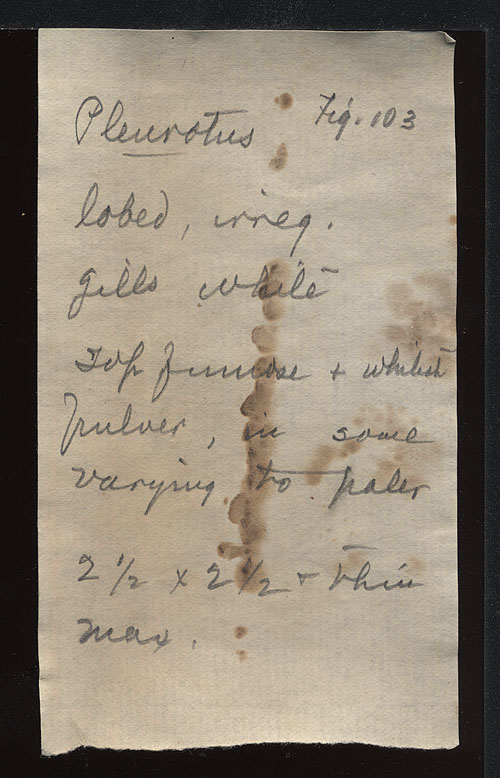 Pleurotus Fig. 103
lobed, irreg.
gills white
Top fumose + whitish
pulver, in some
varying to paler
2 1/2 x 2 1/2 + thin
max.